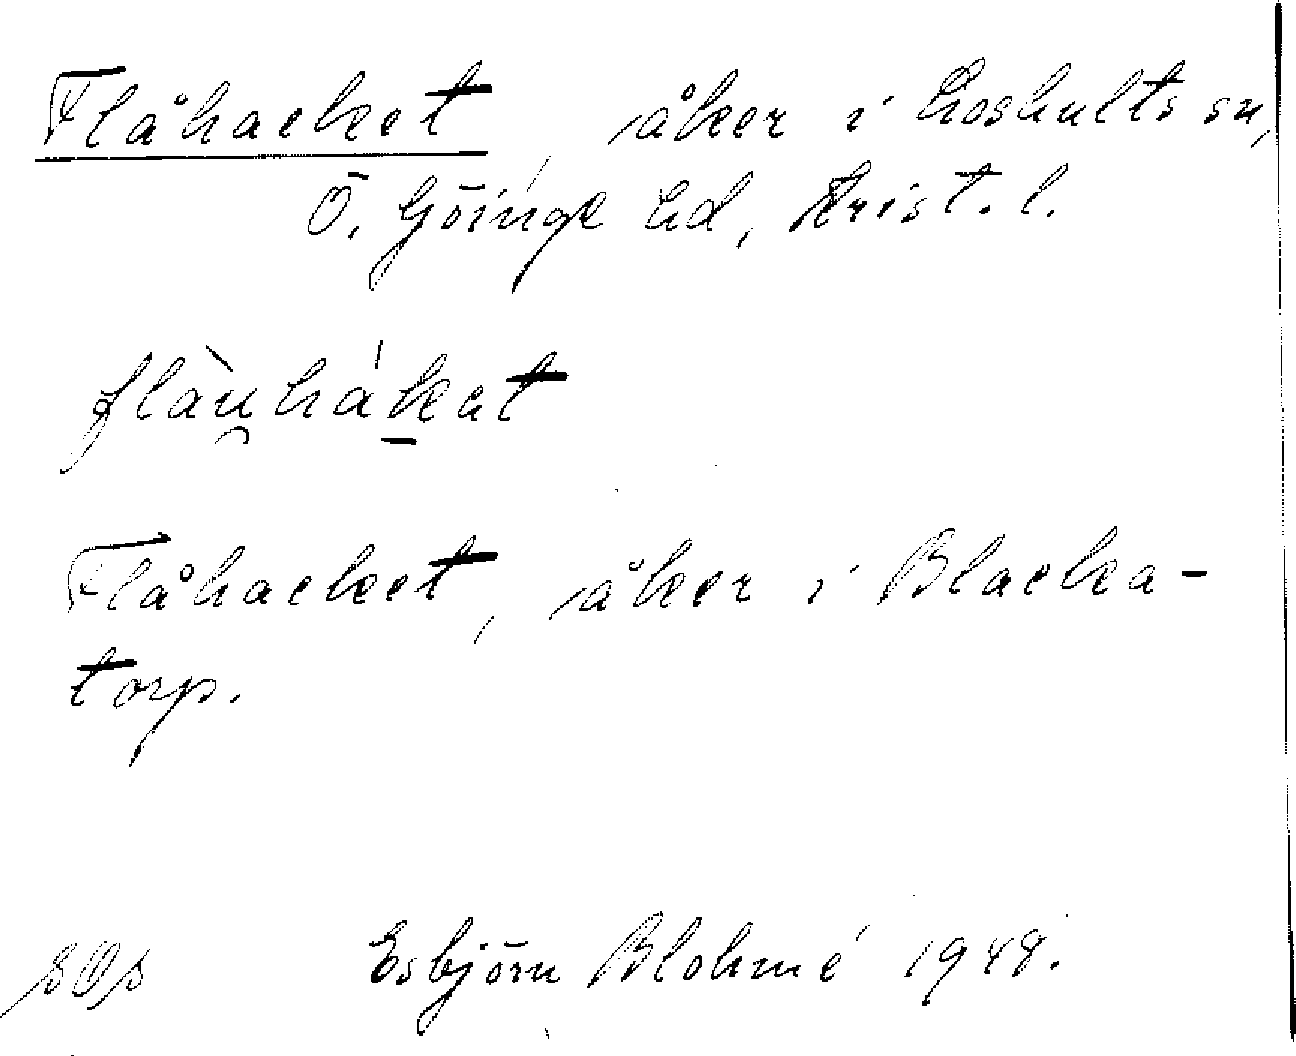 Flåhacket, åker i Loshults sn,
Ö. Göinge hd, Krist. l.
flàu̯hák̠at
Flåhacket, åker i Blacka-
torp.
Esbjörn Blohmé 1948.